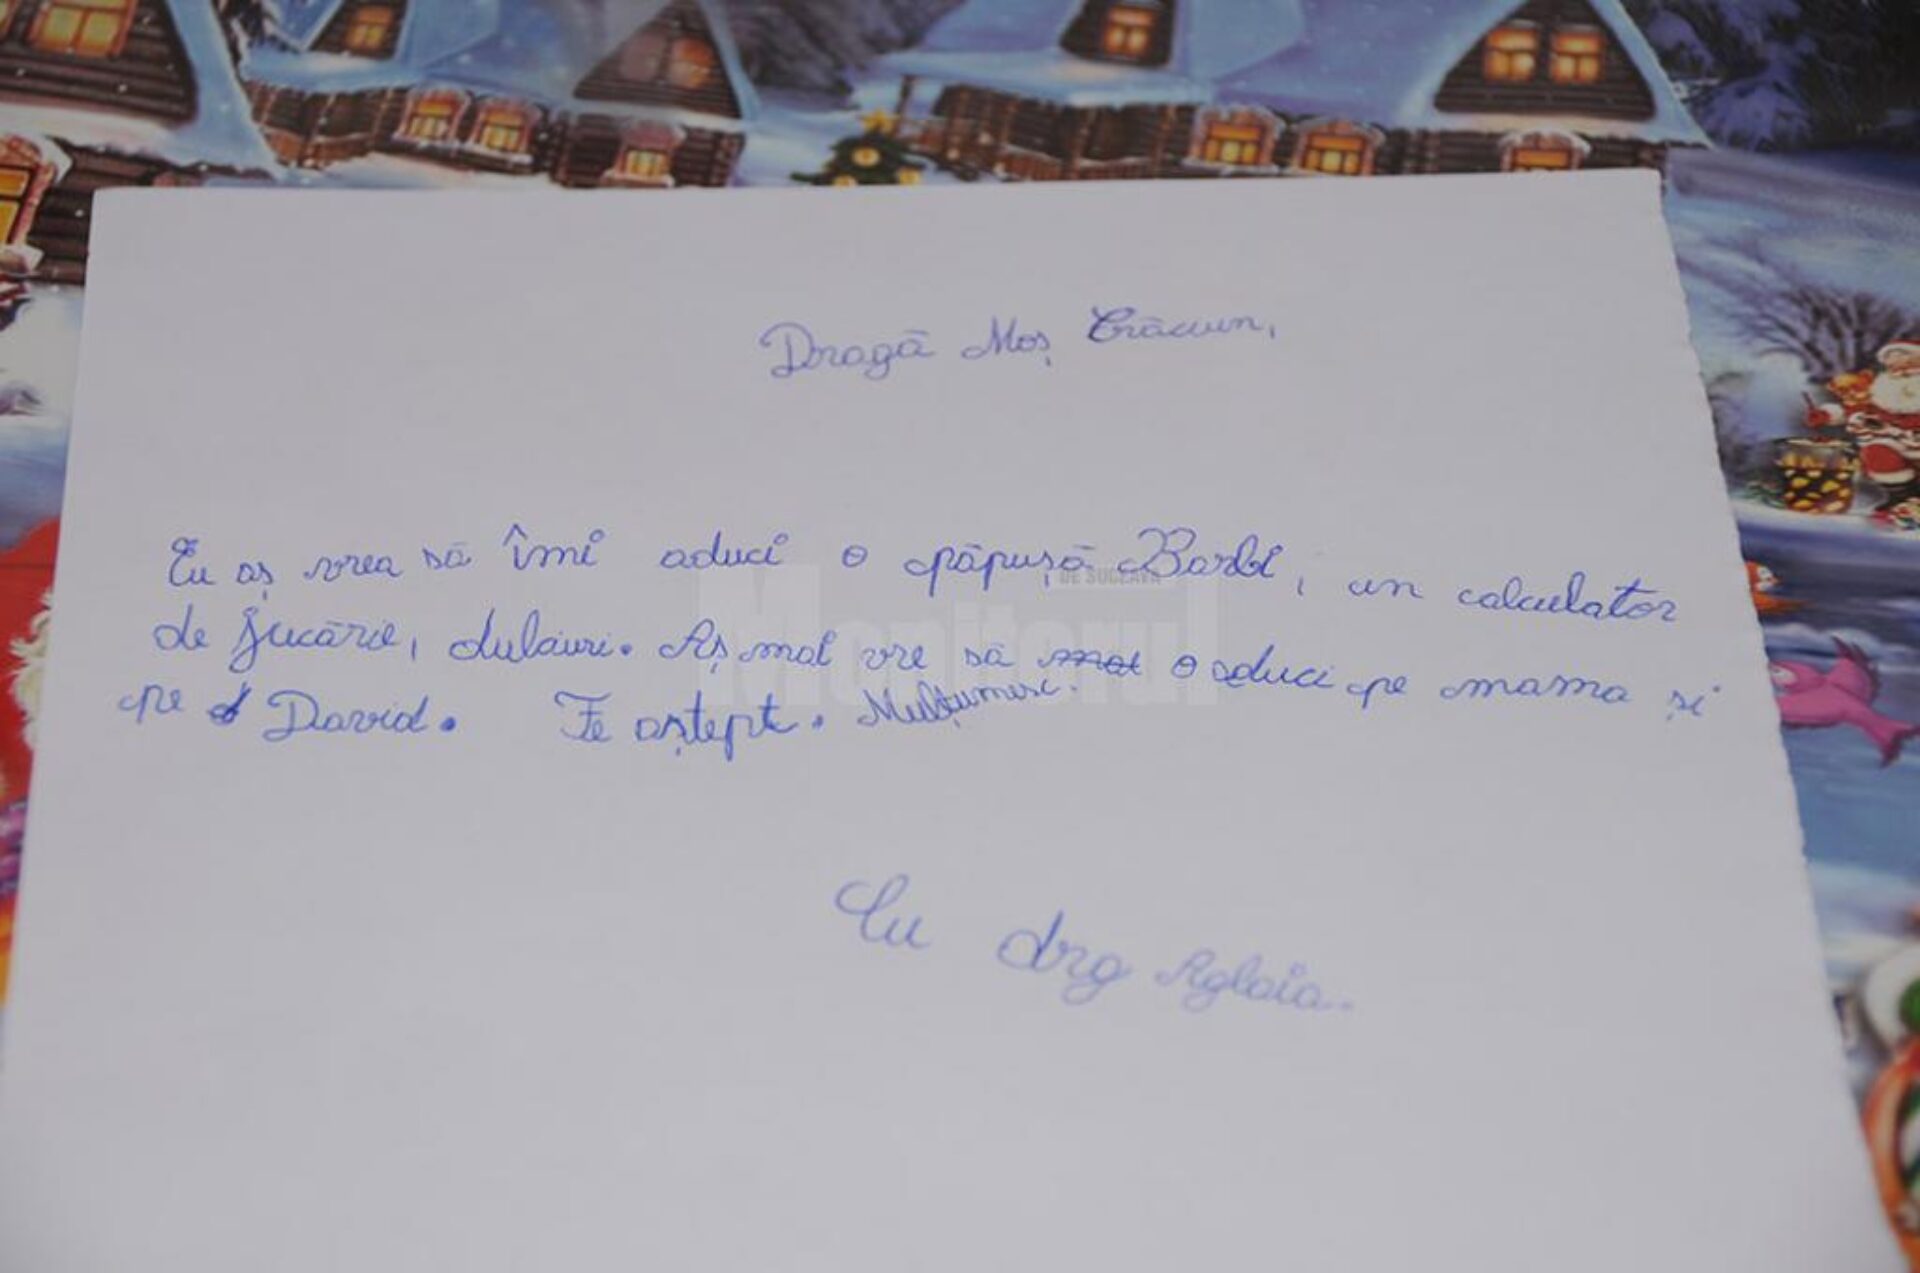 Dragă Moș Crăcun,
Eu aș vrea să îmi aduci o păpușă Barbi, un calculator
de jucărie, dulciuri. Aș mai vre să mai o aduci pe mama și
pe David. Te aștept. Mulțumesc.
Eu drg Aglaia.
Monitorul
DE SUCEAVA